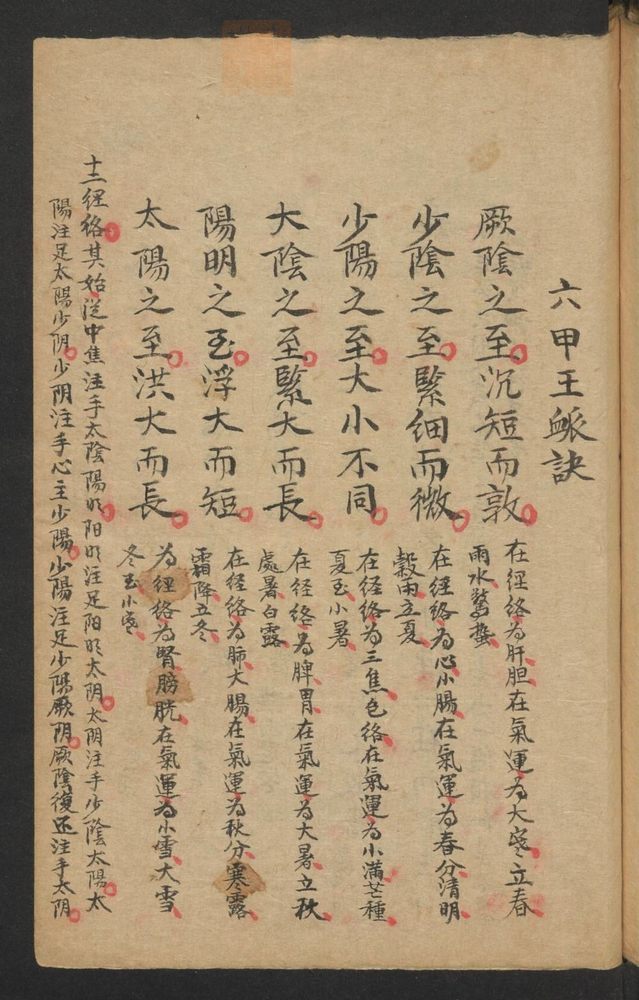 六甲王脈訣
厥陰之至沉短而敦
在經絡為肝胆在氣運為大寒立春
雨水驚蟄
少陰之至緊細而微
在經絡為心小腸在氣運為春分清明
穀雨立夏
少陽之至大小不同
在经絡為三焦包絡在氣運為小滿芒種
夏至小暑
大陰之至緊大而長
在经絡為脾胃在氣運為大暑立秋
處暑白露
陽明之至浮大而短
在经絡為肺大腸在氣運為秋分寒露
霜降立冬
太陽之至洪大而長
為經絡為腎膀胱在氣運為小雪大雪
冬至小寒
十二經絡其始從中焦注手太陰陽明阳明注足阳明太阴太阴注手少陰太陽太
陽注足太陽少阴少阴注手心主少陽少陽注足少陽厥阴厥陰復还注手太阴